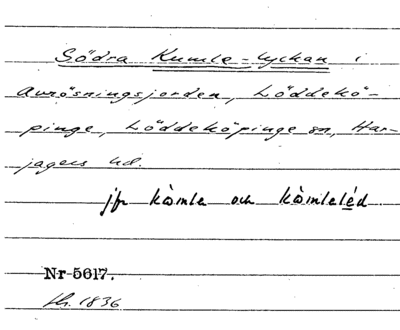 Södra Kumle-lyckan i
avrösningsjorden, Löddekö-
pinge, Löddeköpinge sn, Har-
jagers hd.
jfr kòmle och kòmleléd
Nr 5617.
th. 1836